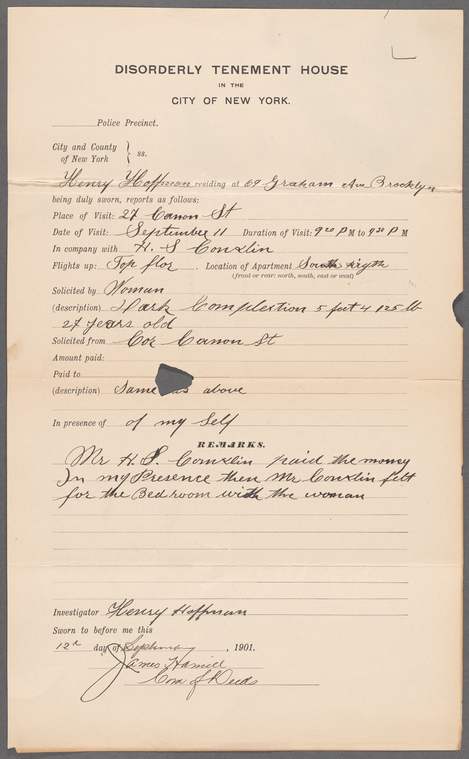 DISORDERLY TENEMENT HOUSE
IN THE
CITY OF NEW YORK.
Police Precinct.
City and County
of New York } ss.
Henry Hoffman residing at 69 Graham Ave Brooklyn
being duly sworn, reports as follows:
Place of Visit: 27 Canon St
Date of Visit: September 11 Duration of Visit: 9 20 P M to 9 30 P M
In company with H. S Conxlin
Flights up: Top flor Location of Apartment South
(front or rear: north, south, east or west)
Solicited by Woman
(description) Dark Complextion 5 feet 4 125 lb
27 years old
Solicited from Cor Canon St
Amount paid:
Paid to
(description) Same as above
In presence of of my Self
REMARKS.
Mr H. S. Conxlin paid the money
In my Presence then Mr Conxlin felt
for the Bedroom with the woman
Investigator Henry Hoffman
Sworn to before me this
12th day of , 1901.
James Hamill
Com of Deeds